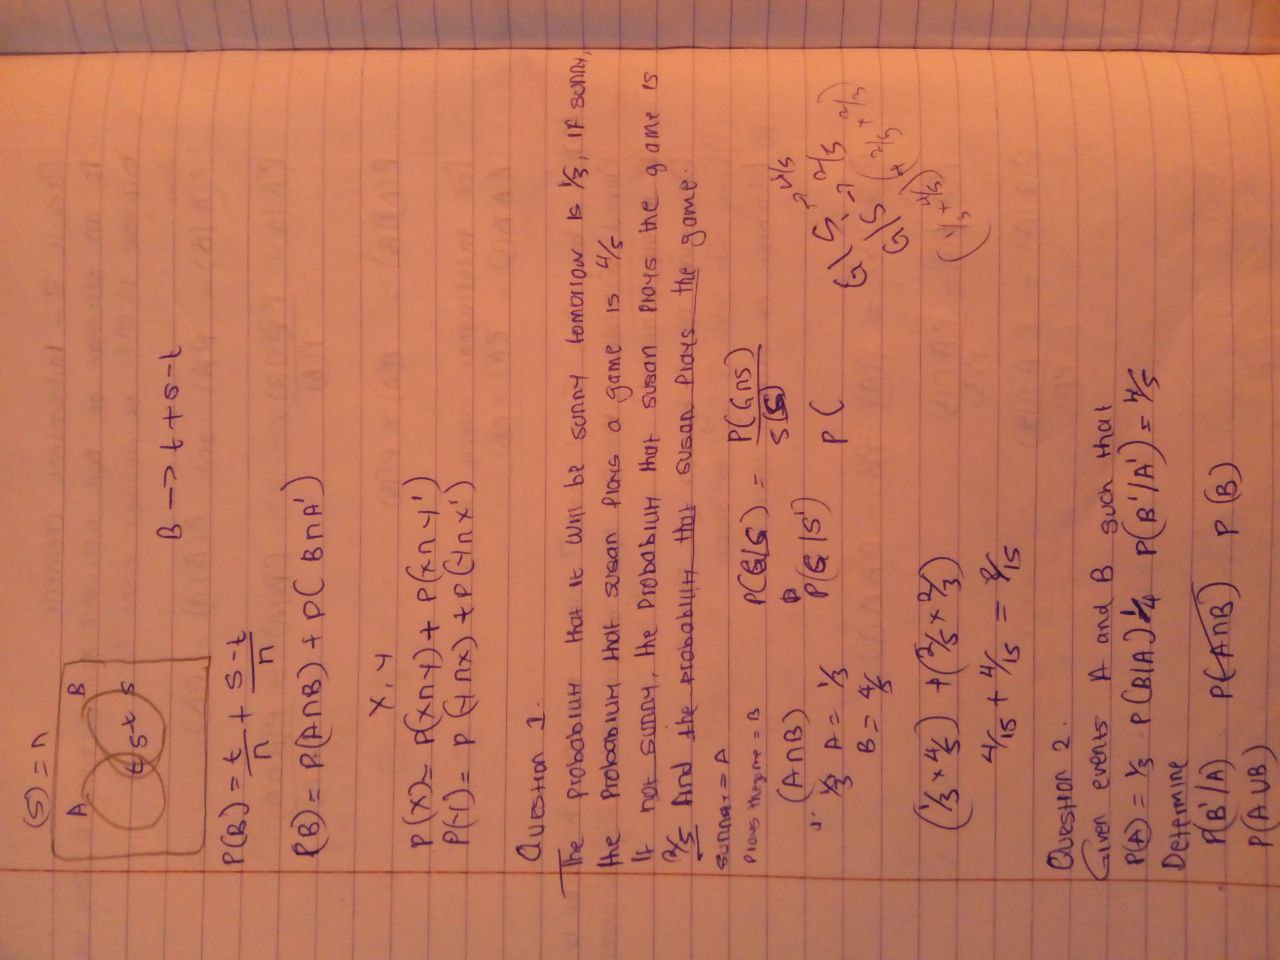 (S) = n
A B
t s-t s
B –> t + s-t
P(B) = t/n + s-t/n
P(B) = P(A∩B) + P( B∩A')
X, Y
P(X) = P(X∩Y) + P(X∩Y')
P(Y) = P(Y∩X) + P(Y∩X')
Question 1.
The probability that it will be sunny tomorrow is 1/3, if sunny,
the probability that susan plays a game is 4/5
If not sunny, the probability that susan plays the game is
2/5 And the probability that susan plays the game.
sunny = A
plays the game = B
P(G/S) = P(G∩S)/S(S)
(A∩B)
P(G/S')
P(
1/3 A = 1/3
B = 4/5
G/S → 4/5
G/S' → 2/5
(1/3 × 4/5) + (2/5 × 2/3)
(1/3 × 4/5) + (2/5 × 2/3)
4/15 + 4/15 = 8/15
Question 2.
Given events A and B such that
P(A) = 1/3 P(B/A) 1/4 P(B'/A') = 4/5
Determine
P(B'/A) P(A∩B) P(B)
P(A∪B)